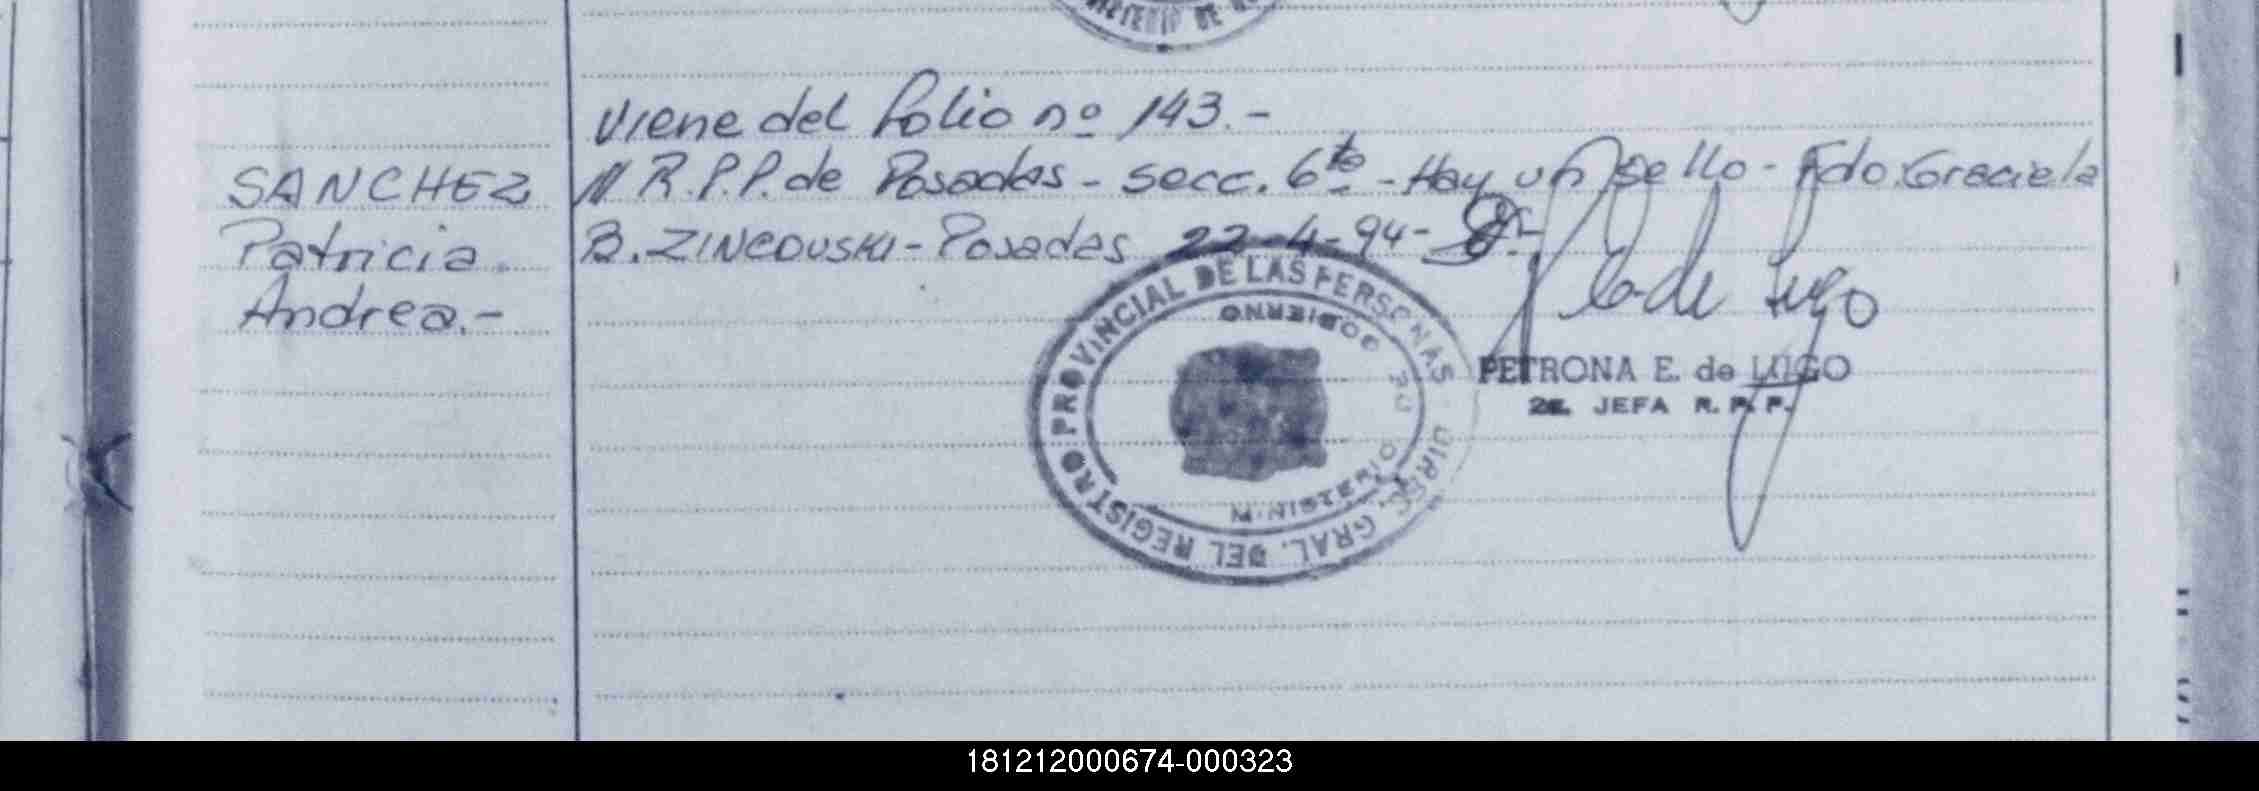 Viene del folio nº 143.-
SANCHEZ
Patricia
Andrea.-
// R.P.P. de Posadas - secc. 6ta - Hay un sello - Fdo. Graciela
B. ZINCOUSKI - Posadas 22-4-94-
DIREC. GRAL. DEL REGISTRO PROVINCIAL DE LAS PERSONAS
MINISTERIO DE GOBIERNO
de Lugo
PETRONA E. de LUGO
2a. JEFA R. P. P.
181212000674-000323